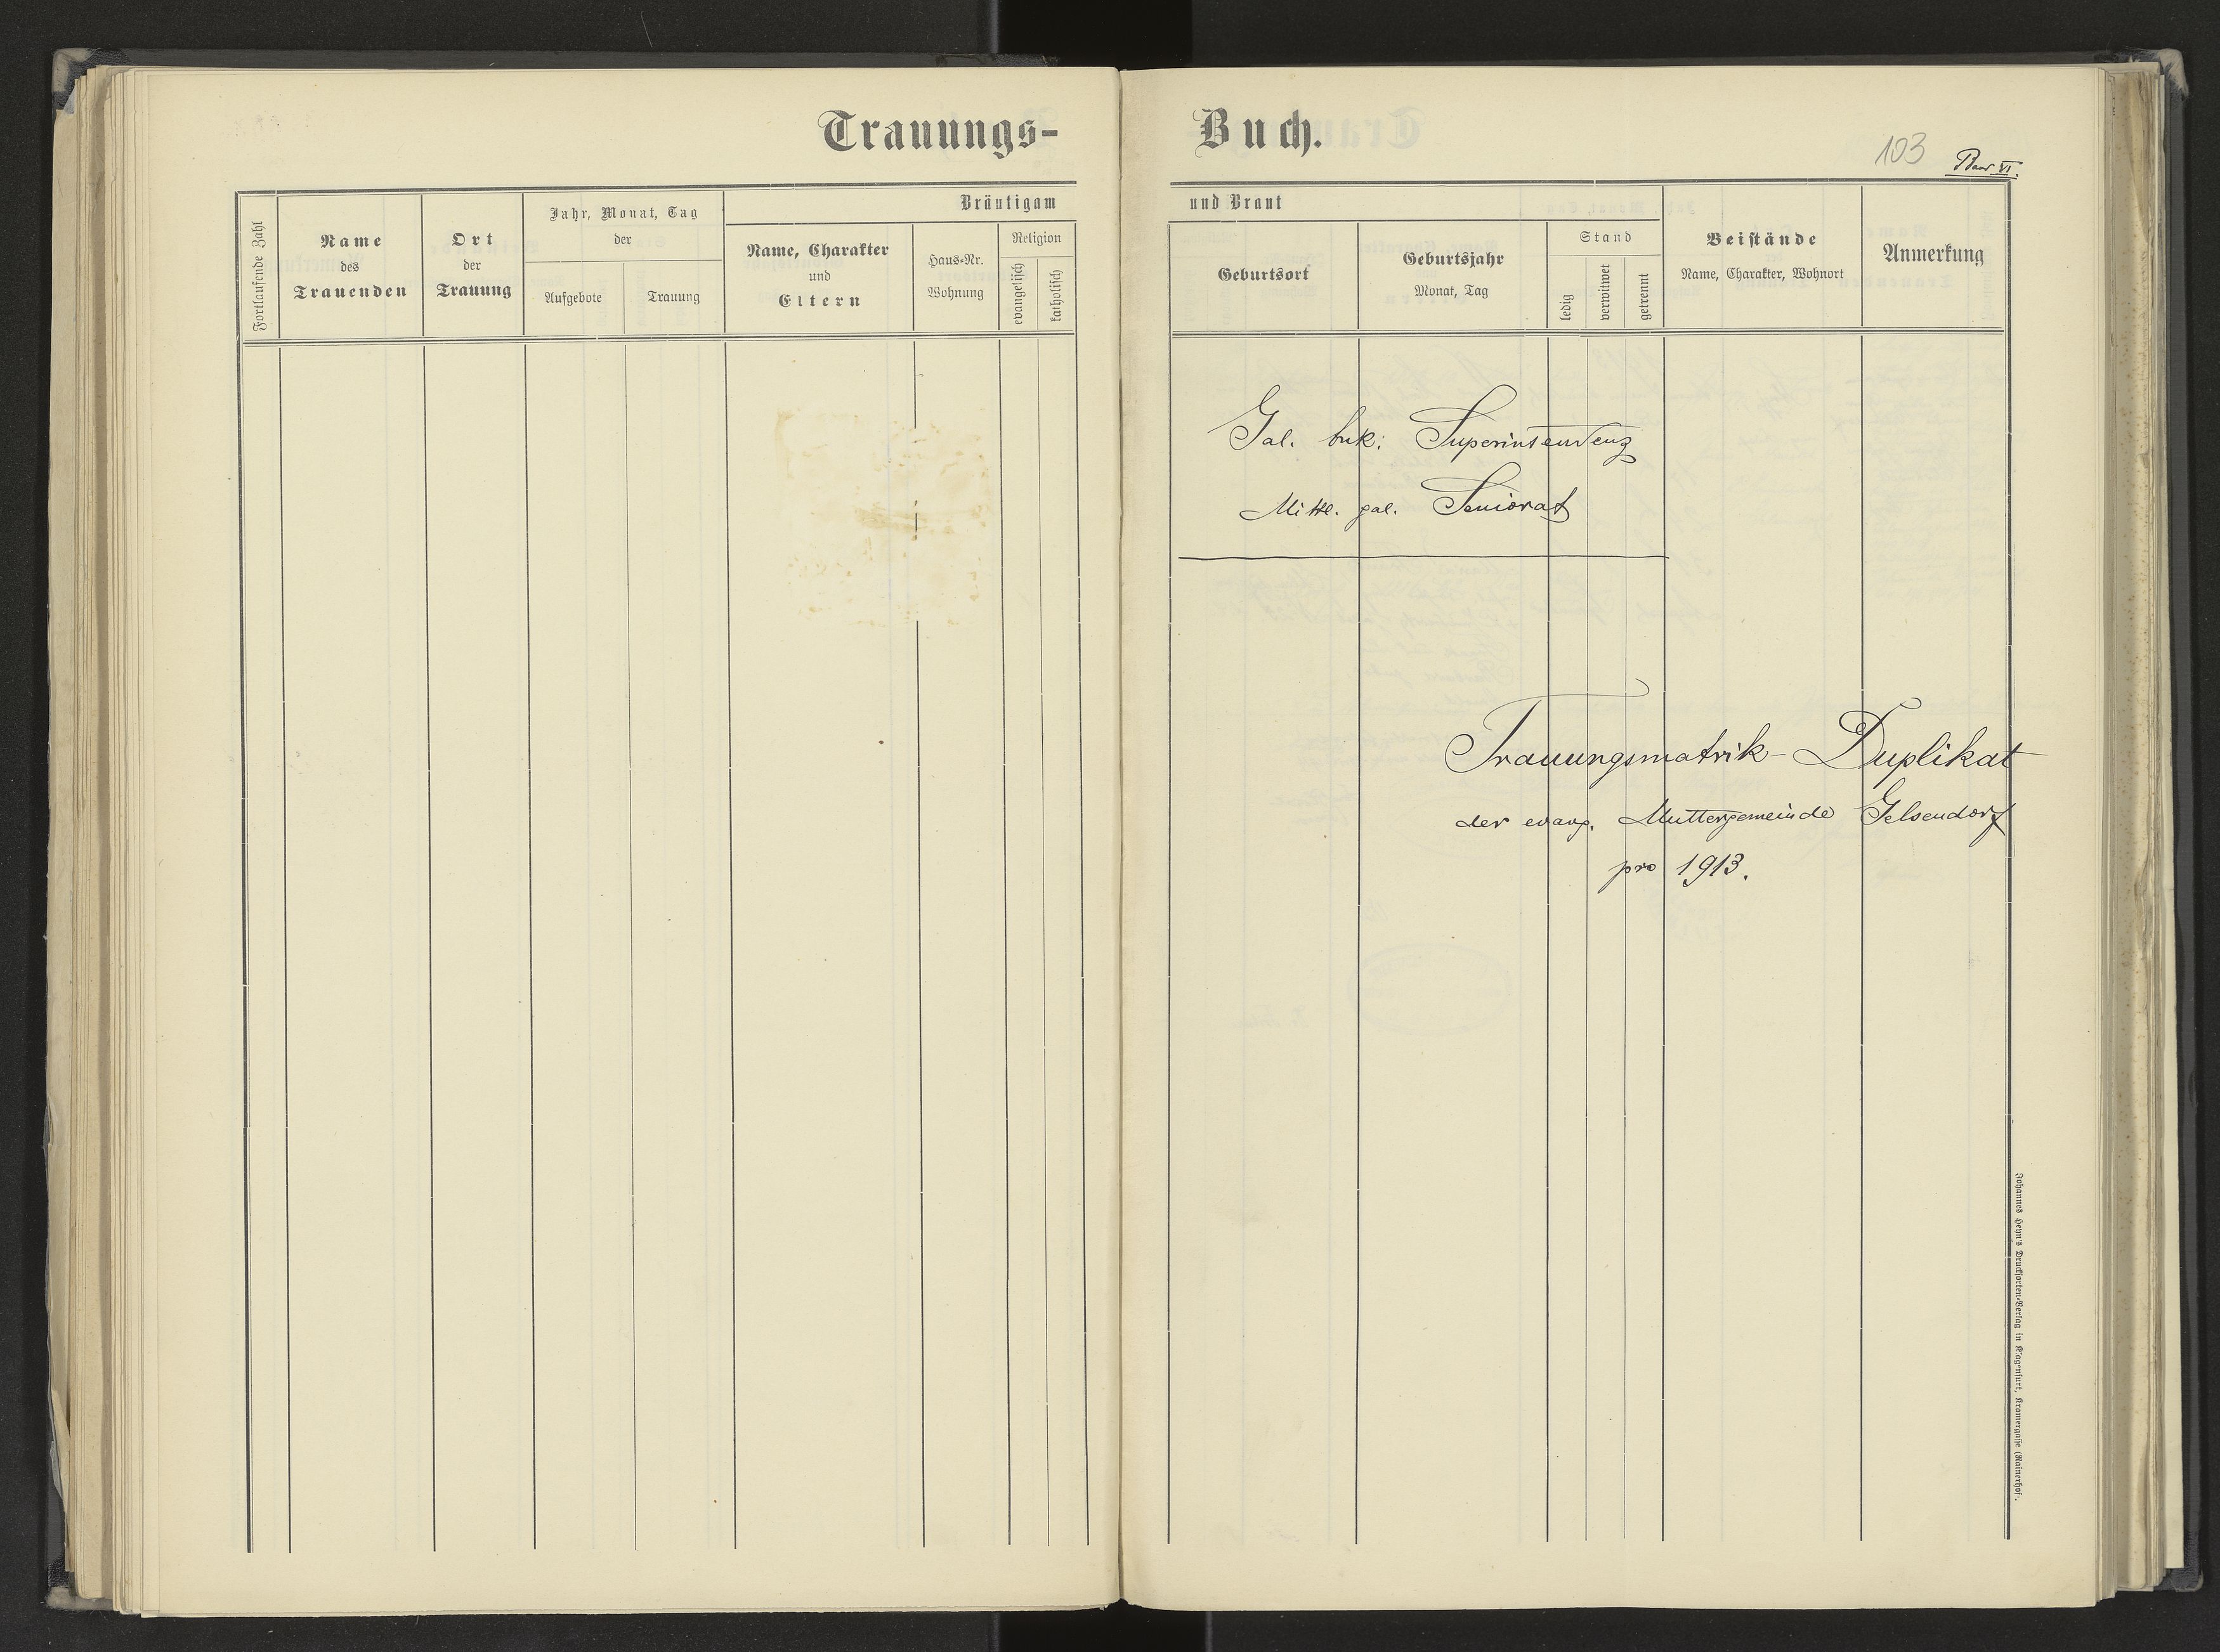 Trauungs-
Fortlaufende Zahl
Name
des
Trauenden
Ort
der
Trauung
Jahr, Monat, Tag
der
Aufgebote
Trauung
Bräutigam
Name, Charakter
und
Eltern
Haus-Nr.
Wohnung
Religion
evangelisch
katholisch
Buch.
103
Band VI.
und Braut
Geburtsort
Geburtsjahr
Monat, Tag
Stand
ledig
verwitwet
getrennt
Beistände
Name, Charakter, Wohnort
Anmerkung
Gal. buk: Superintendenz
Mittl. gal. Seniorat
Trauungsmatrik-Duplikat
der evang. Muttergemeinde Gelsendorf
pro 1913.
Johannes Heyn's Drucksorten-Verlag in Klagenfurt, Kramergasse (Rainerhof).